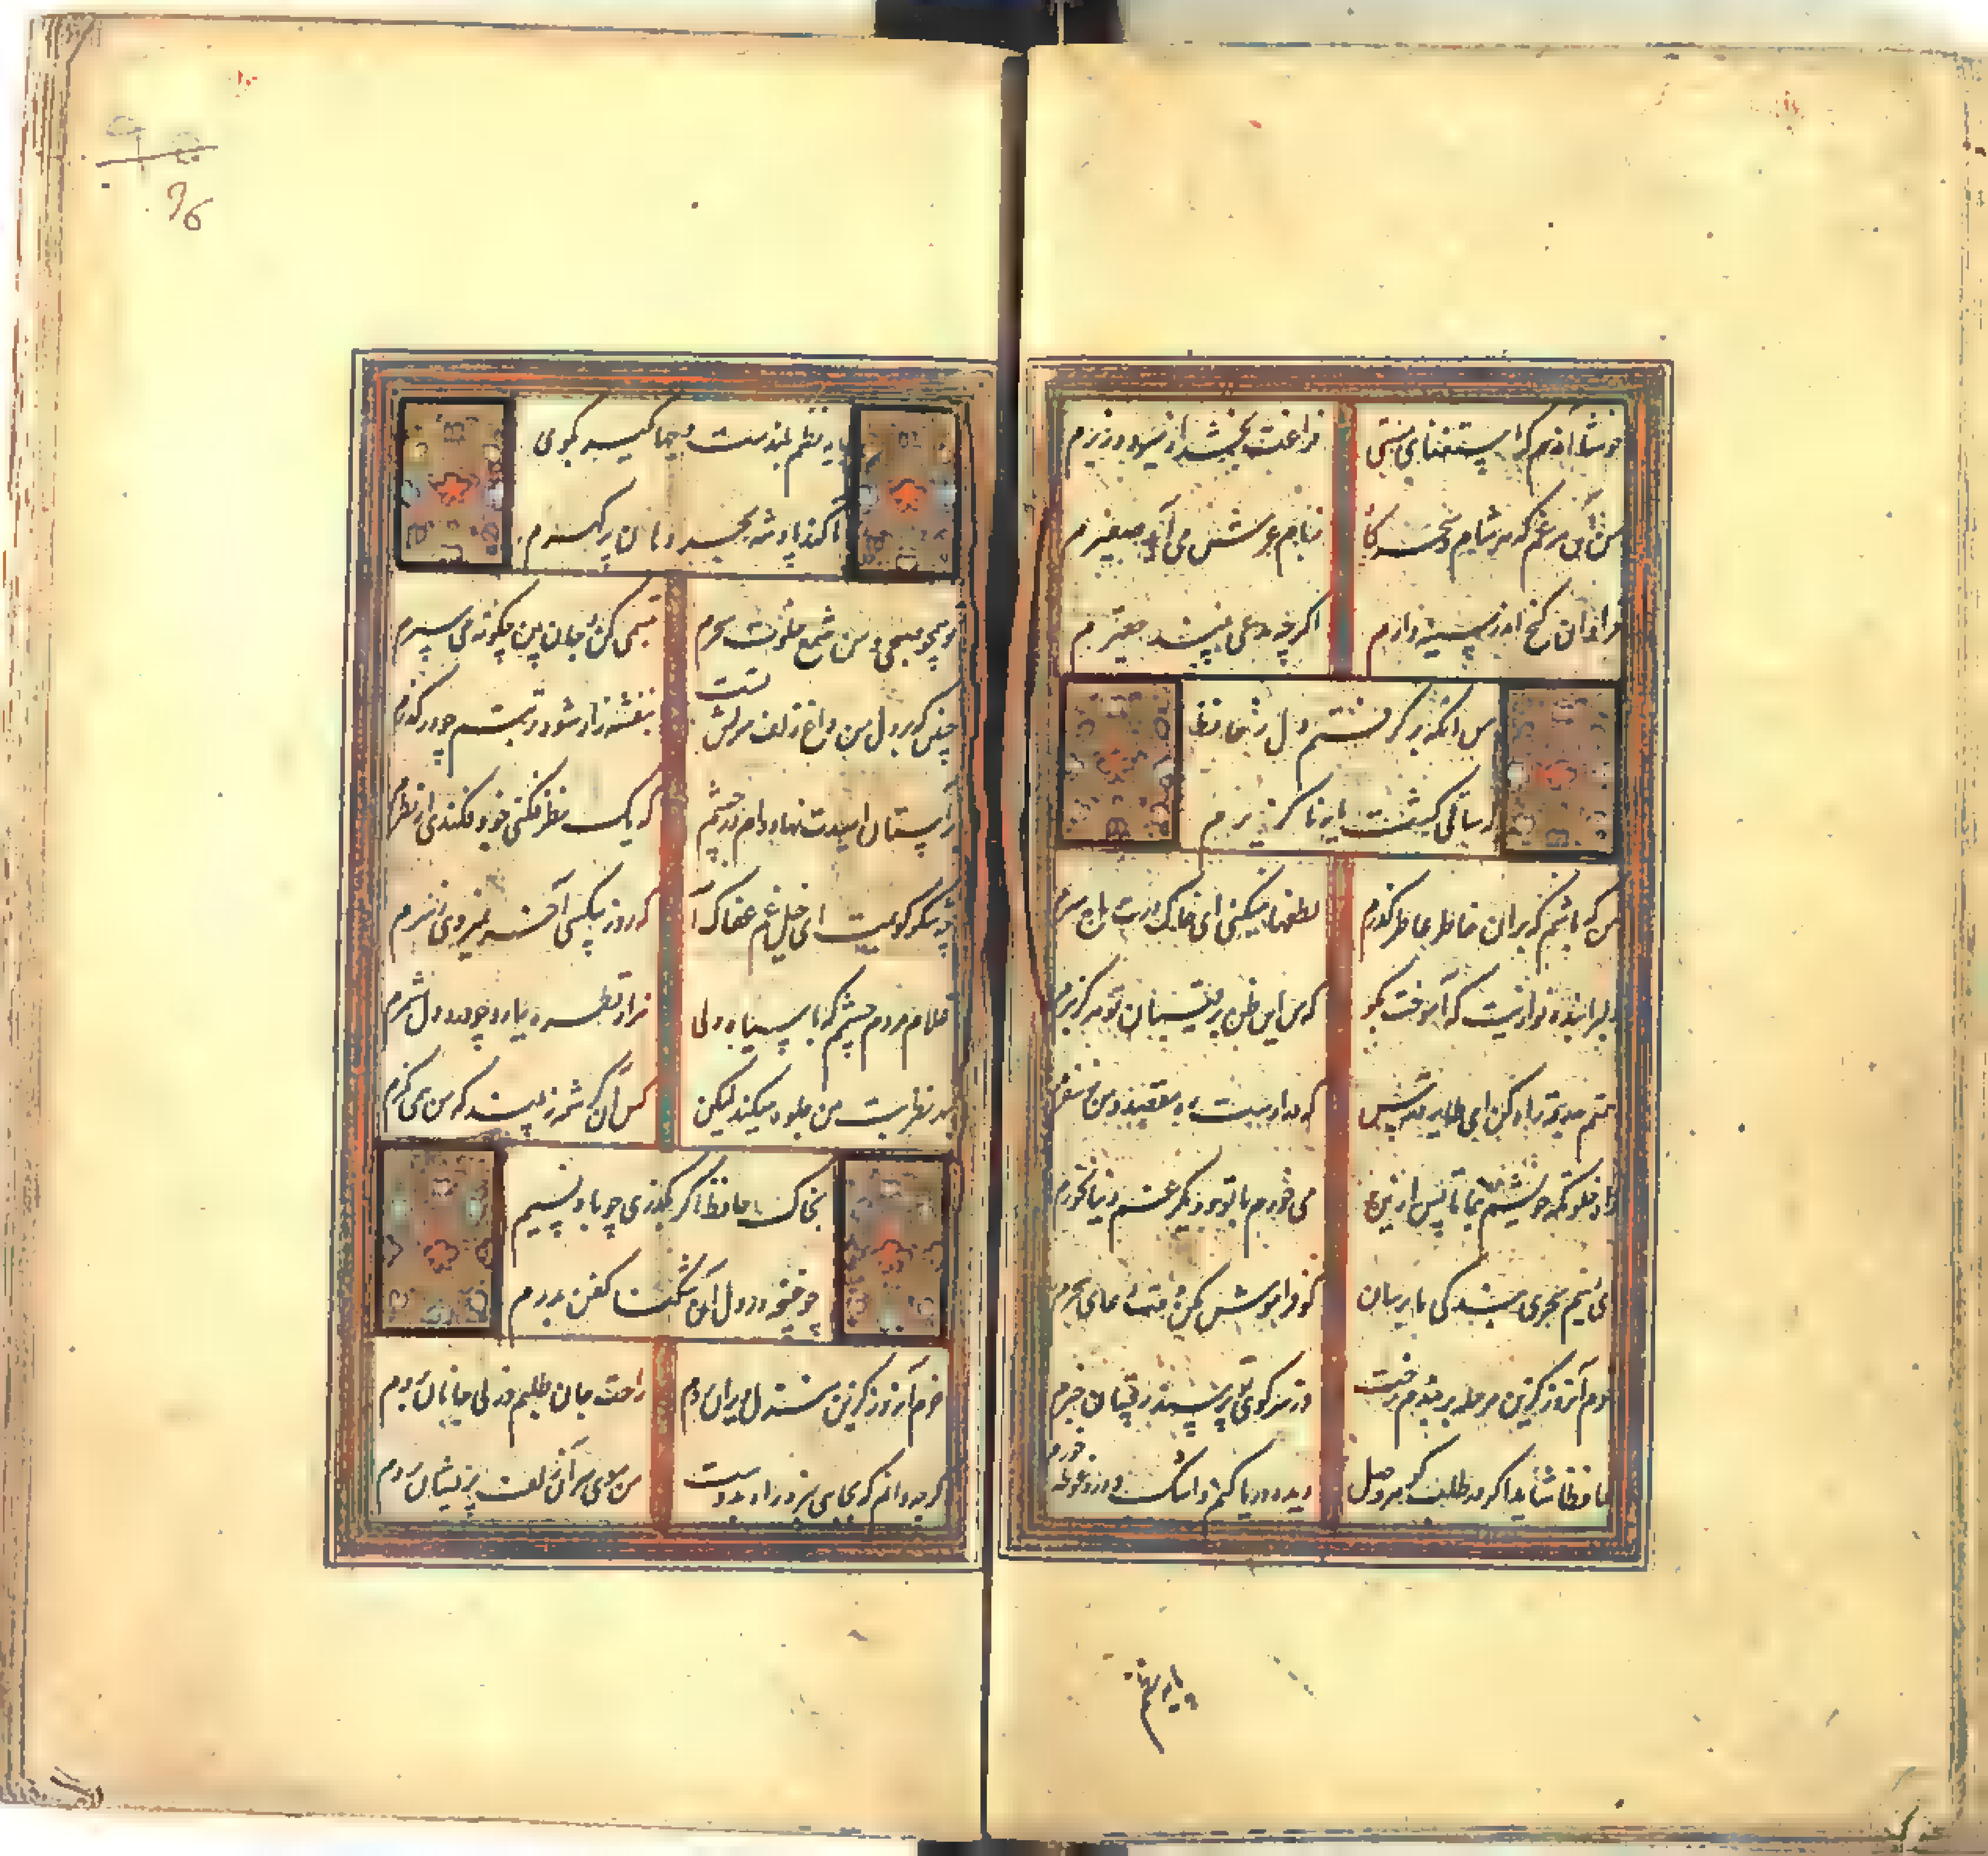 خوشا آندم کز استغنای مستی فراغت بخشد از شاه و وزیرم
من آن مرغم که هر شام و سحرگاه ز بام عرش می آید صفیرم
فراوان گنج غم در سینه دارم اگرچه مدعی بیند حقیرم
من آنگه برگرفتم دل ز حافظ
که ساقی گشت یار ناگزیرم
من که باشم که بر آن خاطر عاطر گذرم لطفها میکنی ای خاک درت تاج سرم
دلبرا بنده نوازیت که آموخت بگو که من این ظن برقیبان تو هرگز نبرم
همتم بدرقه راه کن ای طایر قدس که درازست ره مقصد و من نوسفرم
راه خلوتگه خویشم بنما تا پس ازین می خورم با تو و دیگر غم دنیا نخورم
ای نسیم سحری بندگی ما برسان که فراموش مکن وقت دعای سحرم
خرم آنروز کزین مرحله بربندم رخت وز سر کوی تو پرسند رقیبان خبرم
حافظا شاید اگر در طلب گوهر وصل دیده دریا کنم و اشک و درو غوطه خورم
پایه نظم
پایه نظم بلندست و جهانگیر بگوی
تا کند پادشه بحر دهان پر گهرم
تو همچو صبحی و من شمع خلوت سحرم تبسمی کن و جان بین که چون همی سپرم
چنین که بر دل من داغ زلف سرکش تست بنفشه زار شود تربتم چو درگذرم
بر آستان امیدت نهاده ام در چشم که یک نظر فکنی خود فکندی از نظرم
چه شکر گویمت ای خیل غم عفاک الله که روز بیکسی آخر نمیروی ز سرم
غلام مردم چشمم که با سیاه دلی هزار قطره ببارد چو درد دل شمرم
بهر نظر بت من جلوه میکند لیکن کس آن کرشمه نبیند که من همی نگرم
بخاک حافظ اگر بگذری چو باد نسیم
چو غنچه در دل آن تنگنا کفن بدرم
خرم آنروز کزین منزل ویران بروم راحت جان طلبم وز پی جانان بروم
گرچه دانم که بجایی نبرد راه غریب من ببوی سر آن زلف پریشان بروم